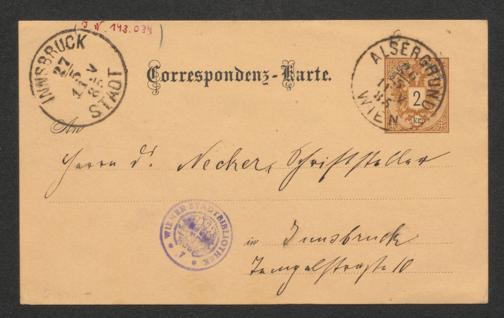 I. N. 143.034
INNSBRUCK
27
5
11 V
85
STADT
Correspondenz-Karte.
ALSERGRUND
WIEN
85
2
kr.
An
Herrn Dr. Necker, Schriftsteller
WIENER STADTBIBLIOTHEK
in Innsbruck
Tempelstraße 10